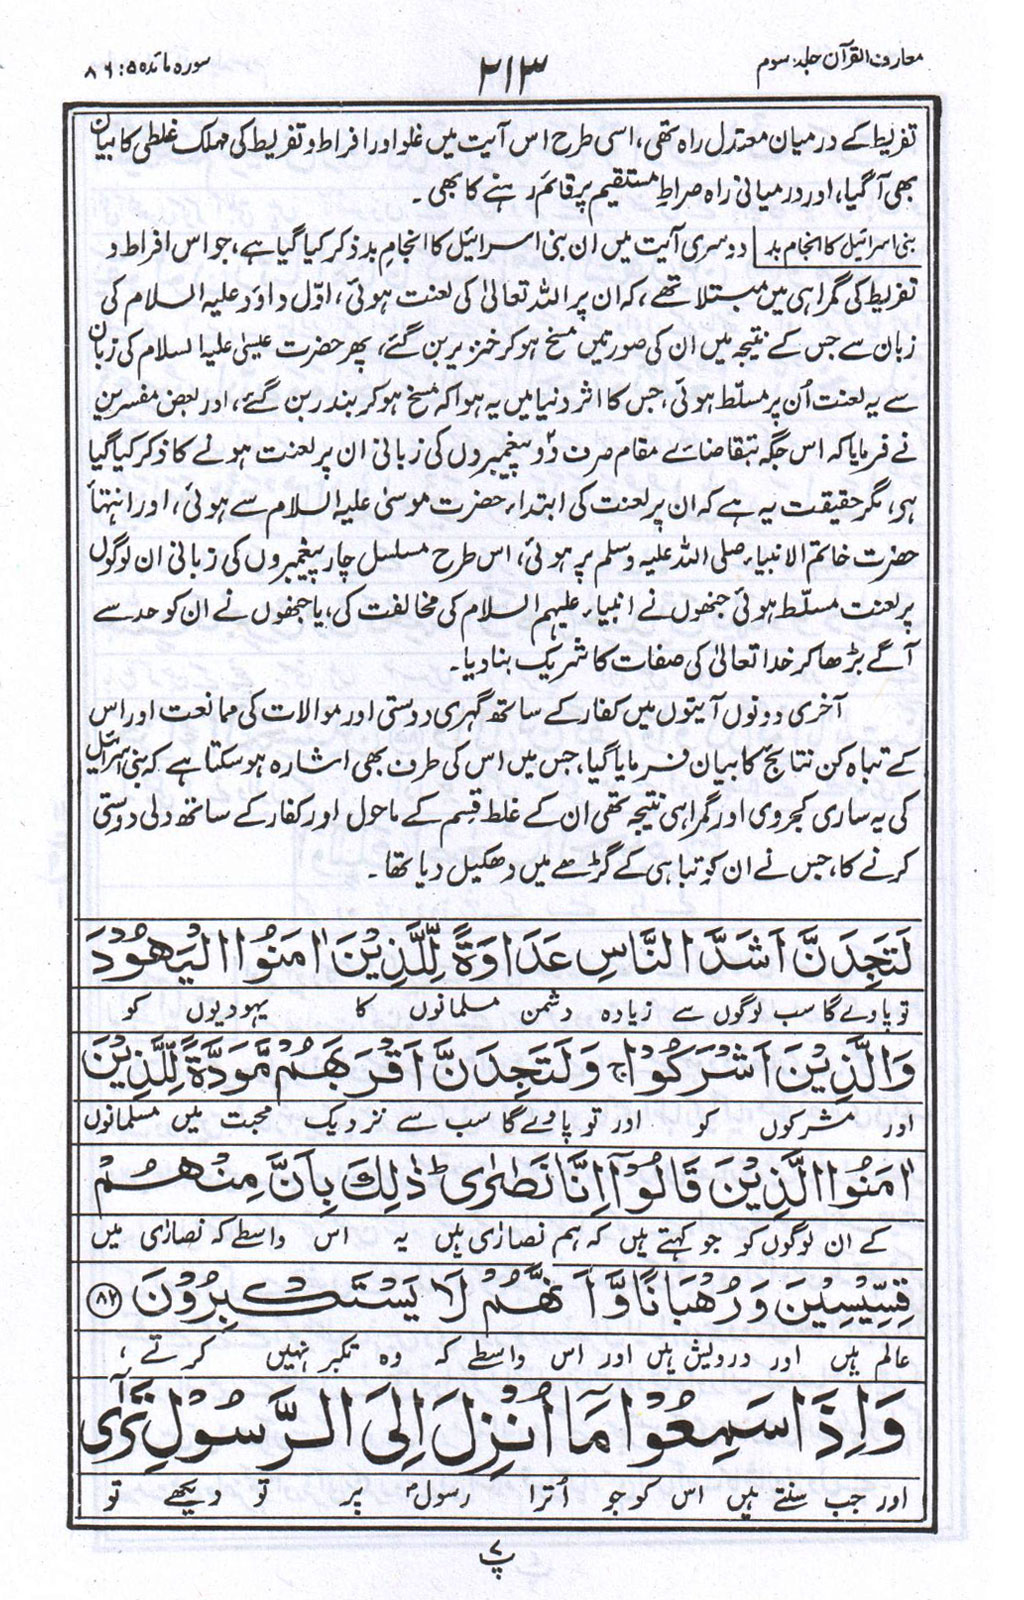 معارف القرآن جلد سوم
۲۱۳
سورہ مائدہ ۵ : ۸۶
تفریط کے درمیان معتدل راہ تھی، اسی طرح اس آیت میں غلو اور افراط و تفریط کی مہلک غلطی کا بیان
بھی آگیا، اور درمیانی راہ صراطِ مستقیم پر قائم رہنے کا بھی ۔
بنی اسرائیل کا انجام بد دوسری آیت میں ان بنی اسرائیل کا انجامِ بد ذکر کیا گیا ہے، جو اس افراط و
تفریط کی گمراہی میں مبتلا تھے، کہ ان پر اللہ تعالیٰ کی لعنت ہوئی، اوّل داؤد علیہ السلام کی
زبان سے جس کے نتیجہ میں ان کی صورتیں مسخ ہو کر خنزیر بن گئے، پھر حضرت عیسیٰ علیہ السلام کی زبان
سے یہ لعنت اُن پر مسلّط ہوئی، جس کا اثر دنیا میں یہ ہوا کہ مسخ ہو کر بندر بن گئے، اور بعض مفسرین
نے فرمایا کہ اس جگہ بتقاضائے مقام صرف دو پیغمبروں کی زبانی ان پر لعنت ہونے کا ذکر کیا گیا
ہی، مگر حقیقت یہ ہے کہ ان پر لعنت کی ابتداء حضرت موسیٰ علیہ السلام سے ہوئی، اور انتہاء
حضرت خاتم الانبیاء صلی اللہ علیہ وسلم پر ہوئی، اس طرح مسلسل چار پیغمبروں کی زبانی ان لوگوں
پر لعنت مسلّط ہوئی جنھوں نے انبیاء علیہم السلام کی مخالفت کی، یا جنھوں نے ان کو حد سے
آگے بڑھا کر خدا تعالیٰ کی صفات کا شریک بنا دیا۔
آخری دونوں آیتوں میں کفار کے ساتھ گہری دوستی اور موالات کی ممانعت اور اس
کے تباہ کن نتائج کا بیان فرمایا گیا، جس میں اس کی طرف بھی اشارہ ہو سکتا ہے کہ بنی اسرائیل
کی یہ ساری کجروی اور گمراہی نتیجہ تھی ان کے غلط قِسم کے ماحول اور کفار کے ساتھ دلی دوستی
کرنے کا، جس نے ان کو تباہی کے گڑھے میں دھکیل دیا تھا ۔
لَتَجِدَنَّ اَشَدَّ النَّاسِ عَدَاوَةً لِّلَّذِيْنَ اٰمَنُوا الْيَهُوْدَ
تو پاوے گا سب لوگوں سے زیادہ دشمن مسلمانوں کا یہودیوں کو
وَالَّذِيْنَ اَشْرَكُوْا ۚ وَلَتَجِدَنَّ اَقْرَبَهُمْ مَّوَدَّةً لِّلَّذِيْنَ
اور مشرکوں کو اور تو پاوے گا سب سے نزدیک محبت میں مسلمانوں
اٰمَنُوا الَّذِيْنَ قَالُوْٓا اِنَّا نَصٰرٰى ؕ ذٰلِكَ بِاَنَّ مِنْهُمْ
کے ان لوگوں کو جو کہتے ہیں کہ ہم نصارٰی ہیں یہ اس واسطے کہ نصارٰی میں
قِسِّيْسِيْنَ وَرُهْبَانًا وَّاَنَّهُمْ لَا يَسْتَكْبِرُوْنَ ﴿۸۲﴾
عالم ہیں اور درویش ہیں اور اس واسطے کہ وہ تکبر نہیں کرتے ،
وَاِذَا سَمِعُوْا مَآ اُنْزِلَ اِلَى الرَّسُوْلِ تَرٰٓى
اور جب سنتے ہیں اس کو جو اُترا رسولؐ پر تو دیکھے تو